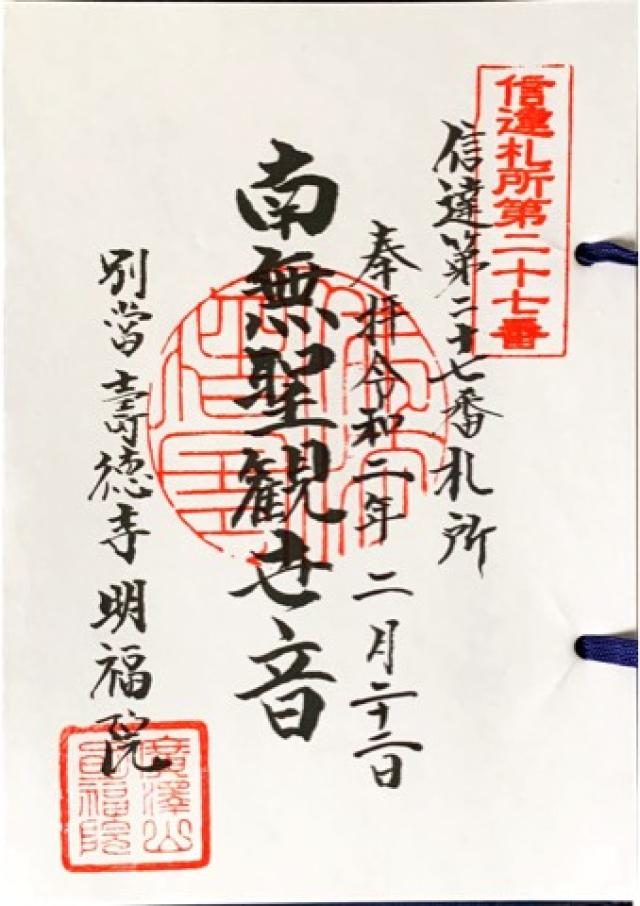 信達札所第二十七番
信達第二十七番札所
奉拝令和二年二月二十二日
南無聖観世音
別當壽徳寺明福院
廣澤山
明福院